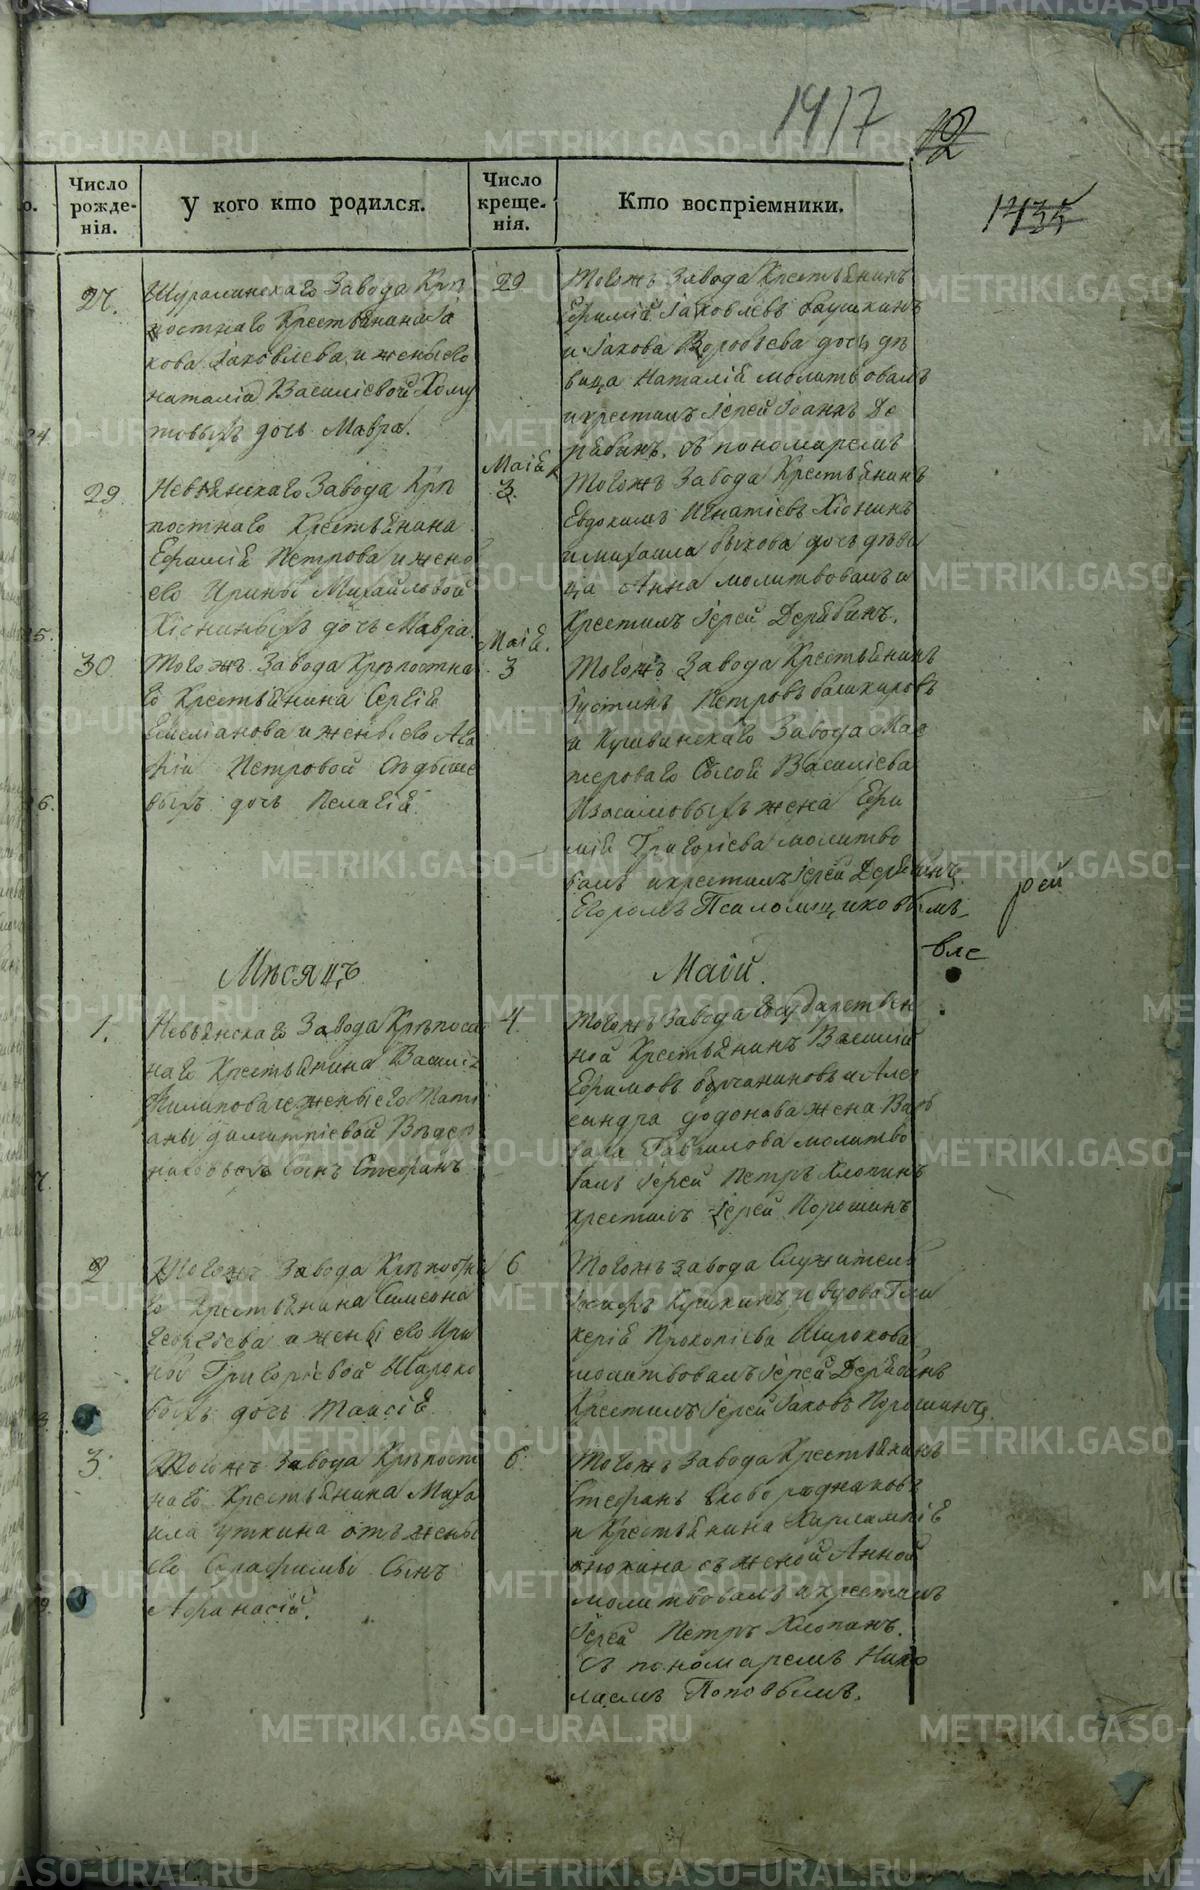 1417
12
1435
Число рожде-нія.
У кого кто родился.
Число креще-нія.
Кто воспріемники.
27.
Шуралинскаго Завода Крѣ
постнаго Крестьянина Іа
кова Іаковлева и жены его
Наталіи Василіевой Хому
товыхъ дочь Мавра.
29
Тогожъ Завода Крестьянинъ
Ефимій Іаковлевъ
и Іакова Воробьева дочь дѣ
вица Наталія молитвовалъ
и крестилъ Іерей Іоаннъ Де
рябинъ. съ пономаремъ
29.
Невьянскаго Завода Крѣ
постнаго Крестьянина
Ефимія Петрова и жены
его Ирины Михайловой
дочь Мавра.
Маія
3.
Тогожъ Завода Крестьянинъ
Евдокимъ Игнатіевъ
и Михаила Быкова дочь дѣви
ца Анна молитвовалъ и
Крестилъ Іерей Дерябинъ.
30
Тогожъ Завода Крѣпостна
го Крестьянина Сергія
Емеліанова и жены его Ага
фіи Петровой
выхъ дочь Пелагія.
Маія.
3
Тогожъ Завода Крестьянинъ
Іустинъ Петровъ Башкировъ
и Кушвинскаго Завода Мас
тероваго Василіева
жена Ефи
мія Григоріева молитво
валъ и крестилъ Іерей Дерябинъ
Егоромъ Псаломщиковымъ
Мѣсяцъ Маій.
1.
Невьянскаго Завода Крѣпост
наго Крестьянина Василія
Филипова и жены его Тати
аны Димитріевой Вѣдер
никовыхъ сынъ Стефанъ
4.
Тогожъ Завода Государствен
ной Крестьянинъ Василій
Ефимовъ и Алек
сандра Додонова жена Вар
вара Гаврилова молитво
валъ Іерей Петръ Хлопинъ
крестилъ Іерей Порошинъ
2
Тогожъ Завода Крѣпостна
го Крестьянина Симеона
Георгіева и жены его Ири
ны Григоріевой Широко
выхъ дочь Таисія
6
Тогожъ Завода Служитель
Кушкинъ и вдова Гли
керія Прокопіева Широкова
молитвовалъ Іерей Дерябинъ
Крестилъ Іерей Іаковъ Порошинъ.
3.
Тогожъ Завода Крѣпост
наго Крестьянина Миха
ила Уткина отъ жены
его Серафимы Сынъ
Афанасій.
6.
Тогожъ Завода Крестьянинъ
Стефанъ Сковородниковъ
и Крестьянина Харлампія
съ женой Анной
молитвовалъ и крестилъ
Іерей Петръ Хлопинъ.
съ пономаремъ Нико
лаемъ Поповымъ.
METRIKI.GASO-URAL.RU